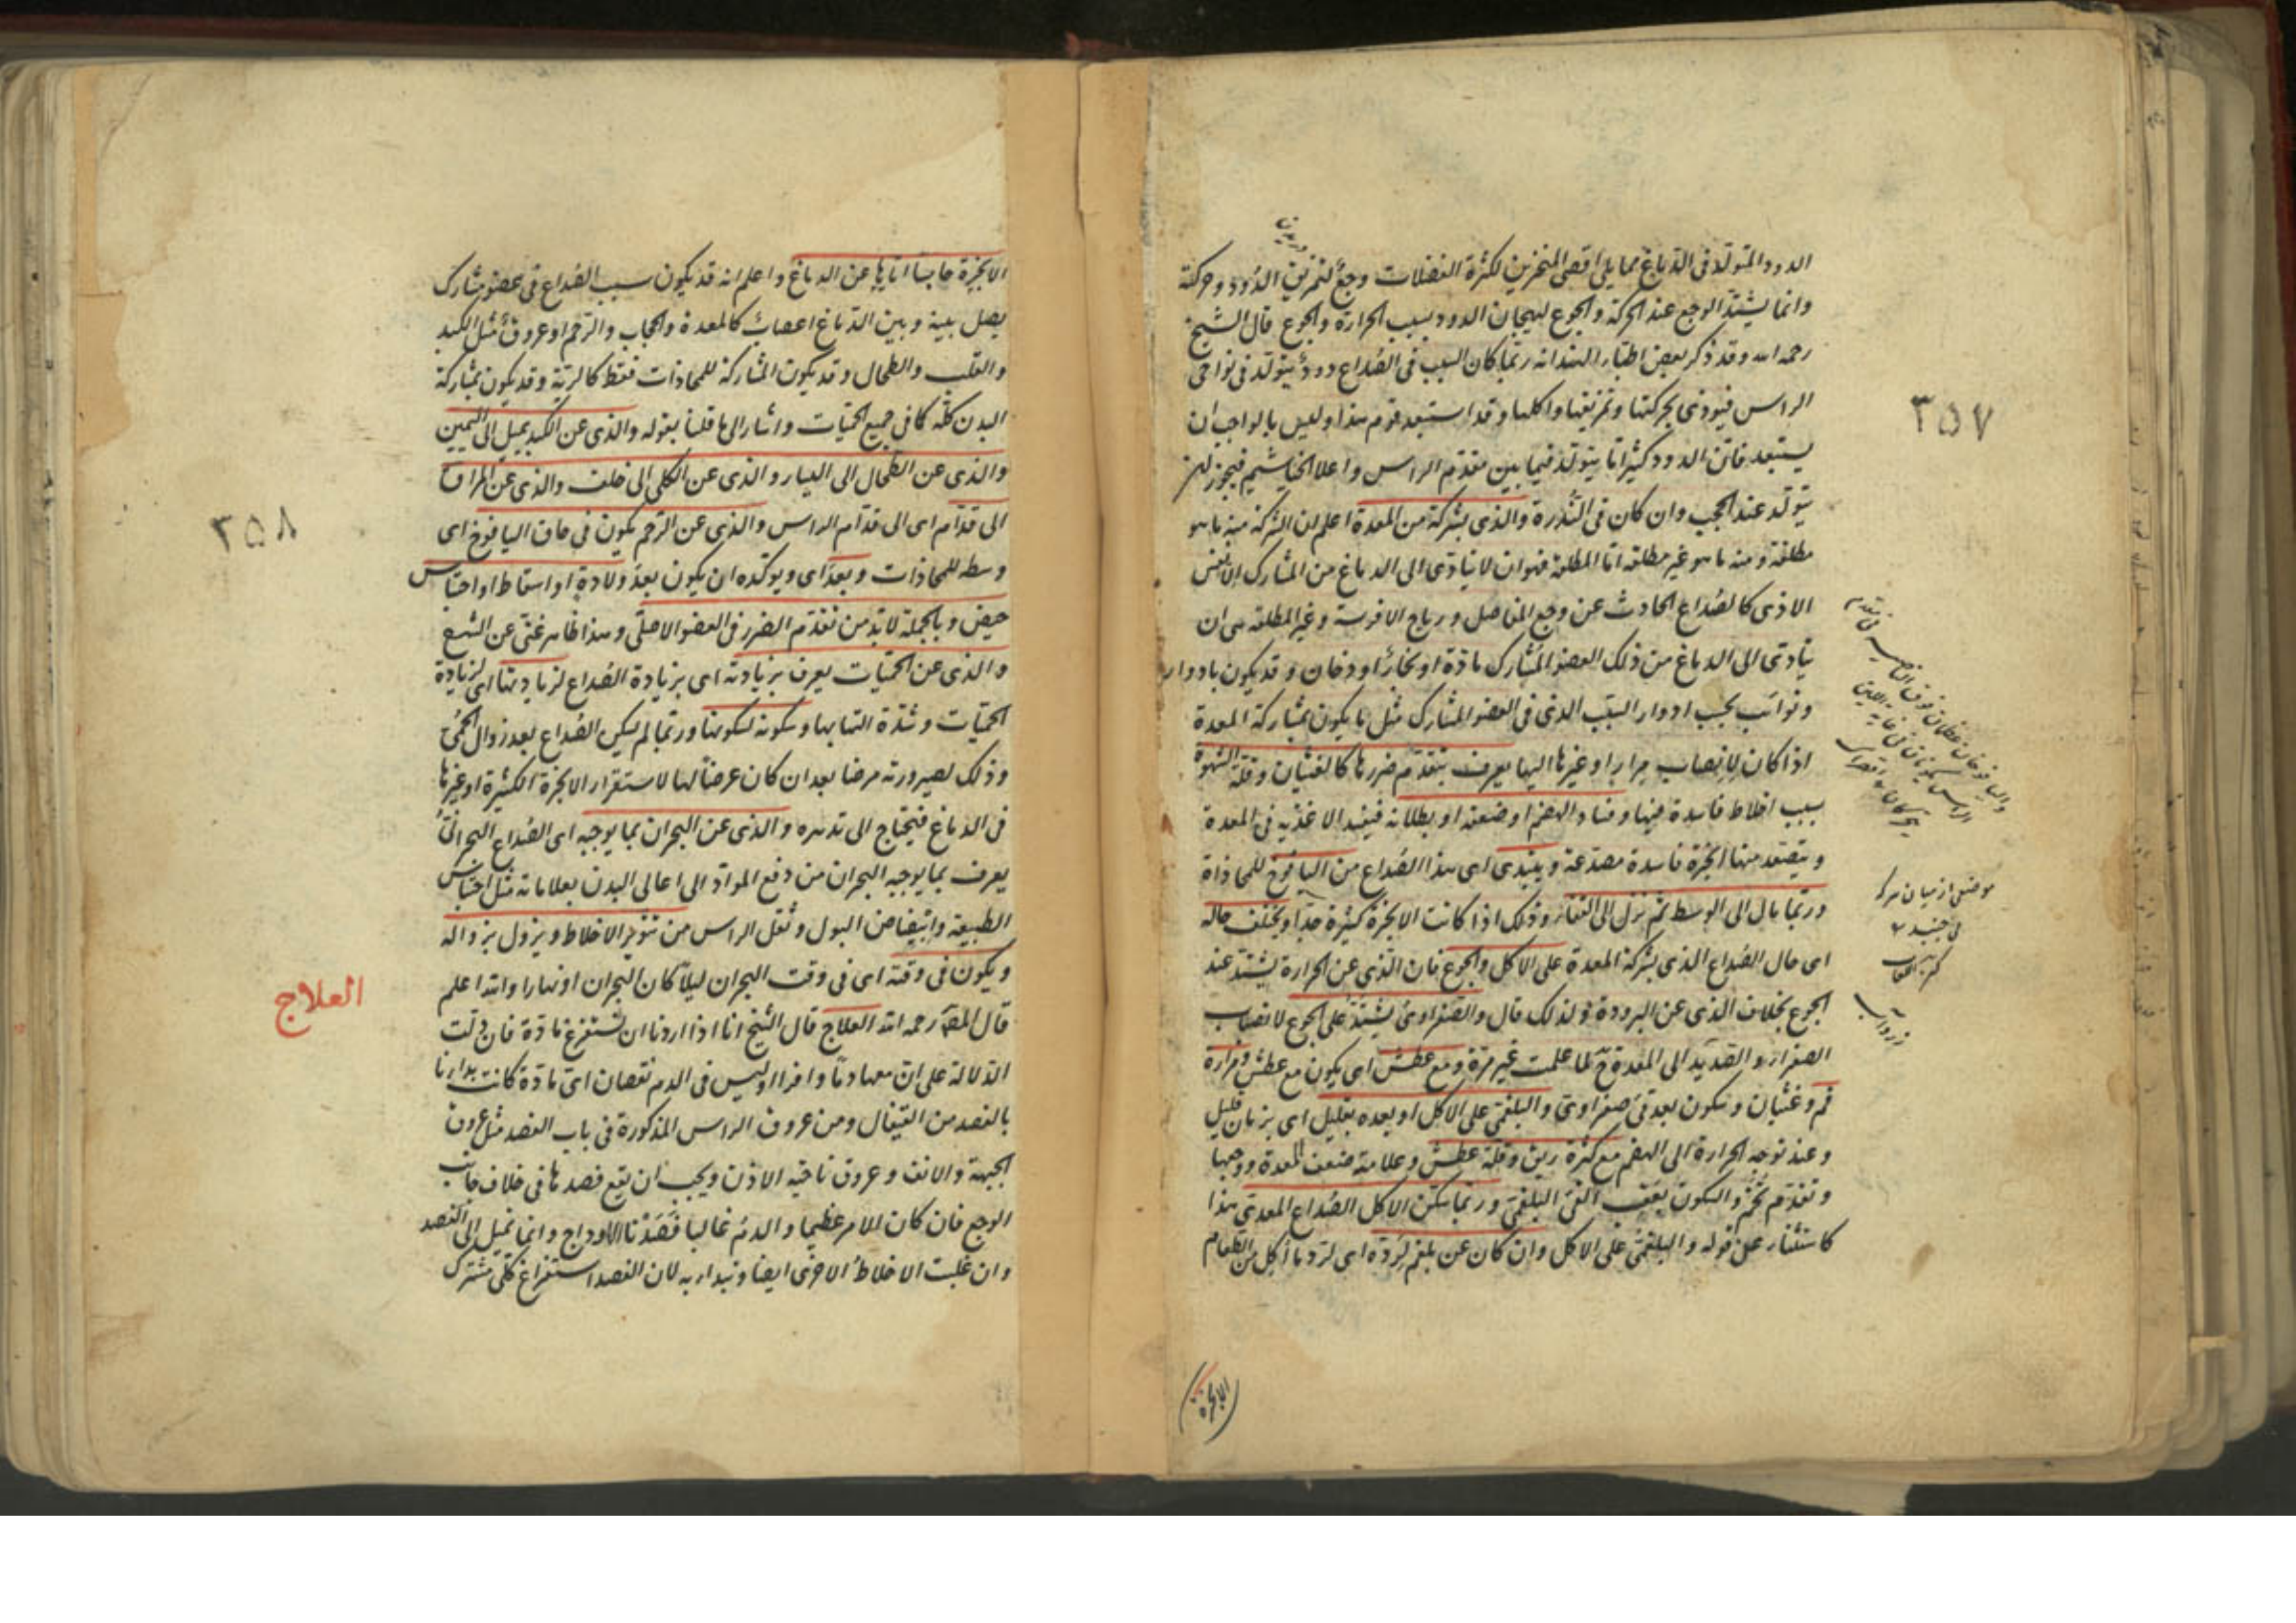 الدود المتولد فى الدماغ مما يلى اقصى المنخرين لكثرة الفضلات وجع لتمزيق الدود وحركته
وانما يشتد الوجع عند الحركة والجوع لهيجان الدود بسبب الحرارة والجوع قال الشيخ
رحمه الله وقد ذكر بعض اطباء الهند انه ربما كان السبب فى الصداع دود يتولد فى نواحى
الراس فيوذى بحركتها وتمزيقها واكلها وقد استبعد قوم هذا وليس بالواجب ان
يستبعد فان الدود كثيرا ما يتولد فيما بين مقدم الراس واعلا الخياشيم فيجوز ان
يتولد عند الحجب وان كان فى الندرة والذى بشركة من المعدة اعلم ان الشركة منه ما هو
مطلقة ومنه ما هو غير مطلقة اما المطلقة فهو ان لا يتادى الى الدماغ من المشارك الا نفس
الاذى كالصداع الحادث عن وجع المفاصل ورياح الافرسة وغير المطلقة هى ان
يتادى الى الدماغ من ذلك العضو المشارك مادة او بخار او دخان وقد يكون بادوار
ونوائب بحسب ادوار السبب الذى فى العضو المشارك مثل ما يكون بمشاركة المعدة
اذا كان لانصاب مرار او غيرها اليها يعرف بتقدم ضررها كالغثيان وقلة الشهوة
بسبب اخلاط فاسدة فيها وفساد الهضم او ضعفه او بطلانه فيفسد الاغذية فى المعدة
ويتصعد منها ابخرة فاسدة مصدعة ويبتدى اى هذا الصداع من اليافوخ للمحاذاة
وربما مال الى الوسط ثم نزل الى القفا وذلك اذا كانت الابخرة كثيرة جدا ويختلف حاله
اى حال الصداع الذى بشركة المعدة على الاكل والجوع فان الذى عن الحرارة يشتد عند
الجوع بخلاف الذى عن البرودة ولذلك قال والصفراوى يشتد على الجوع لانصباب
الصفراء والصديد الى المعدة ح لما علمت غير مرة ومع عطش اى يكون مع عطش ومرارة
فم وغثيان وسكون بعد قئ صفراوى والبلغمى على الاكل او بعده بقليل اى بزمان قليل
وعند توجه الحرارة الى الهضم مع كثرة ريق وقلة عطش وعلامة ضعف المعدة ووجعها
وتقدم تخم والسكون بعقب القئ البلغمى وربما سكن الاكل الصداع المعدى هذا
كاستثناء على قوله والبلغمى على الاكل وان كان عن بلغم لرده اى لرد ما اكل من الطعام
الابخرة
٣٥٧
موضعى از ميان سر كه
مى جنبد
الابخرة جانبا اياها عن الدماغ واعلم انه قد يكون سبب الصداع فى عضو مشارك
يصل بينه وبين الدماغ اعصاب كالمعدة والحجاب والرحم او عروق مثل الكبد
والقلب والطحال وقد يكون المشاركة للمحاذات فقط كالرية وقد يكون بمشاركة
البدن كله كما فى جميع الحميات واشار الى ما قلنا بقوله والذى عن الكبد يميل الى اليمين
والذى عن الطحال الى اليسار والذى عن الكلى الى خلف والذى عن المراق
الى قدام اى الى قدام الراس والذى عن الرحم يكون فى حاق اليافوخ اى
وسطه للمحاذات وبعد اى ويوكده ان يكون بعد ولادة او اسقاط او احتباس
حيض وبالجملة لا بد من تقدم الضرر فى العضو الاصلى وهذا ظاهر غنى عن الشرح
والذى عن الحميات يعرف بزيادته اى بزيادة الصداع لزيادتها اى لزيادة
الحميات وشدة التهابها وسكونه لسكونها وربما لم يسكن الصداع بعد زوال الحمى
وذلك لصيرورته مرضا بعد ان كان عرضا لها لاستقرار الابخرة الكثيرة او غيرها
فى الدماغ فيحتاج الى تدبيره والذى عن البحران بما يوجبه اى الصداع البحرانى
يعرف بما يوجبه البحران من دفع المواد الى اعالى البدن بعلاماته مثل احتباس
الطبيعة وابيضاض البول وثقل الراس من تثوير الاخلاط ويزول بزواله
ويكون فى وقته اى فى وقت البحران ليلا كان البحران او نهارا والله اعلم
قال المص رحمه الله العلاج قال الشيخ انا اذا اردنا ان نستفرغ مادة فان دلت
الدلالة على ان معها دما وافرا او ليس فى الدم نقصان اى مادة كانت بدانا
بالفصد من القيفال ومن عروق الراس المذكورة فى باب الفصد مثل عروق
الجبهة والانف وعروق ناحية الاذن ويجب ان يقع فصدها فى خلاف جانب
الوجع فان كان الامر عظيما والدم غالبا فصدنا الاوداج وانما نميل الى الفصد
وان غلبت الاخلاط الاخرى ايضا ونبدا به لان الفصد استفراغ كلى مشترك
العلاج
٣٥٨